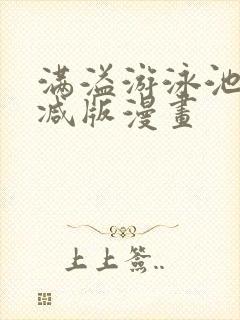 满溢游泳池
减版漫畫
上上簽..